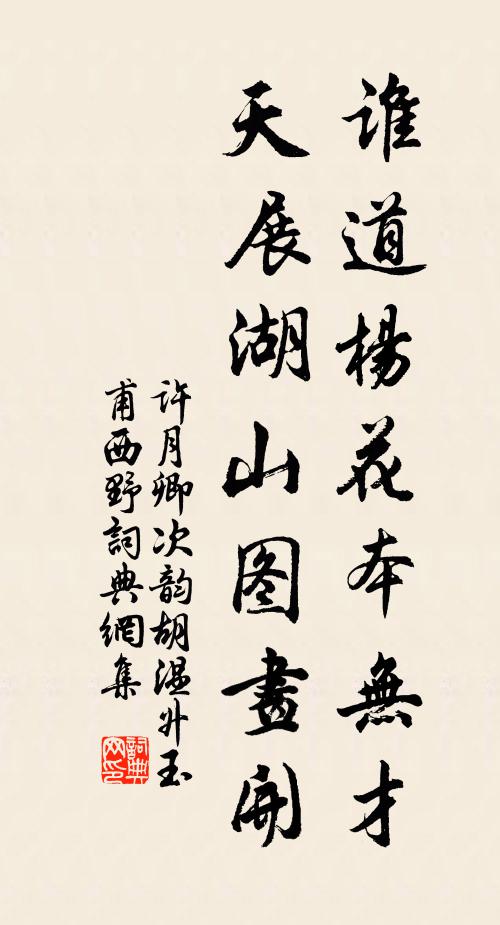 谁道楊花本無才
天展湖山图畫開
许月卿次韵胡温升玉
甫西野詞典網集
詞典
网印